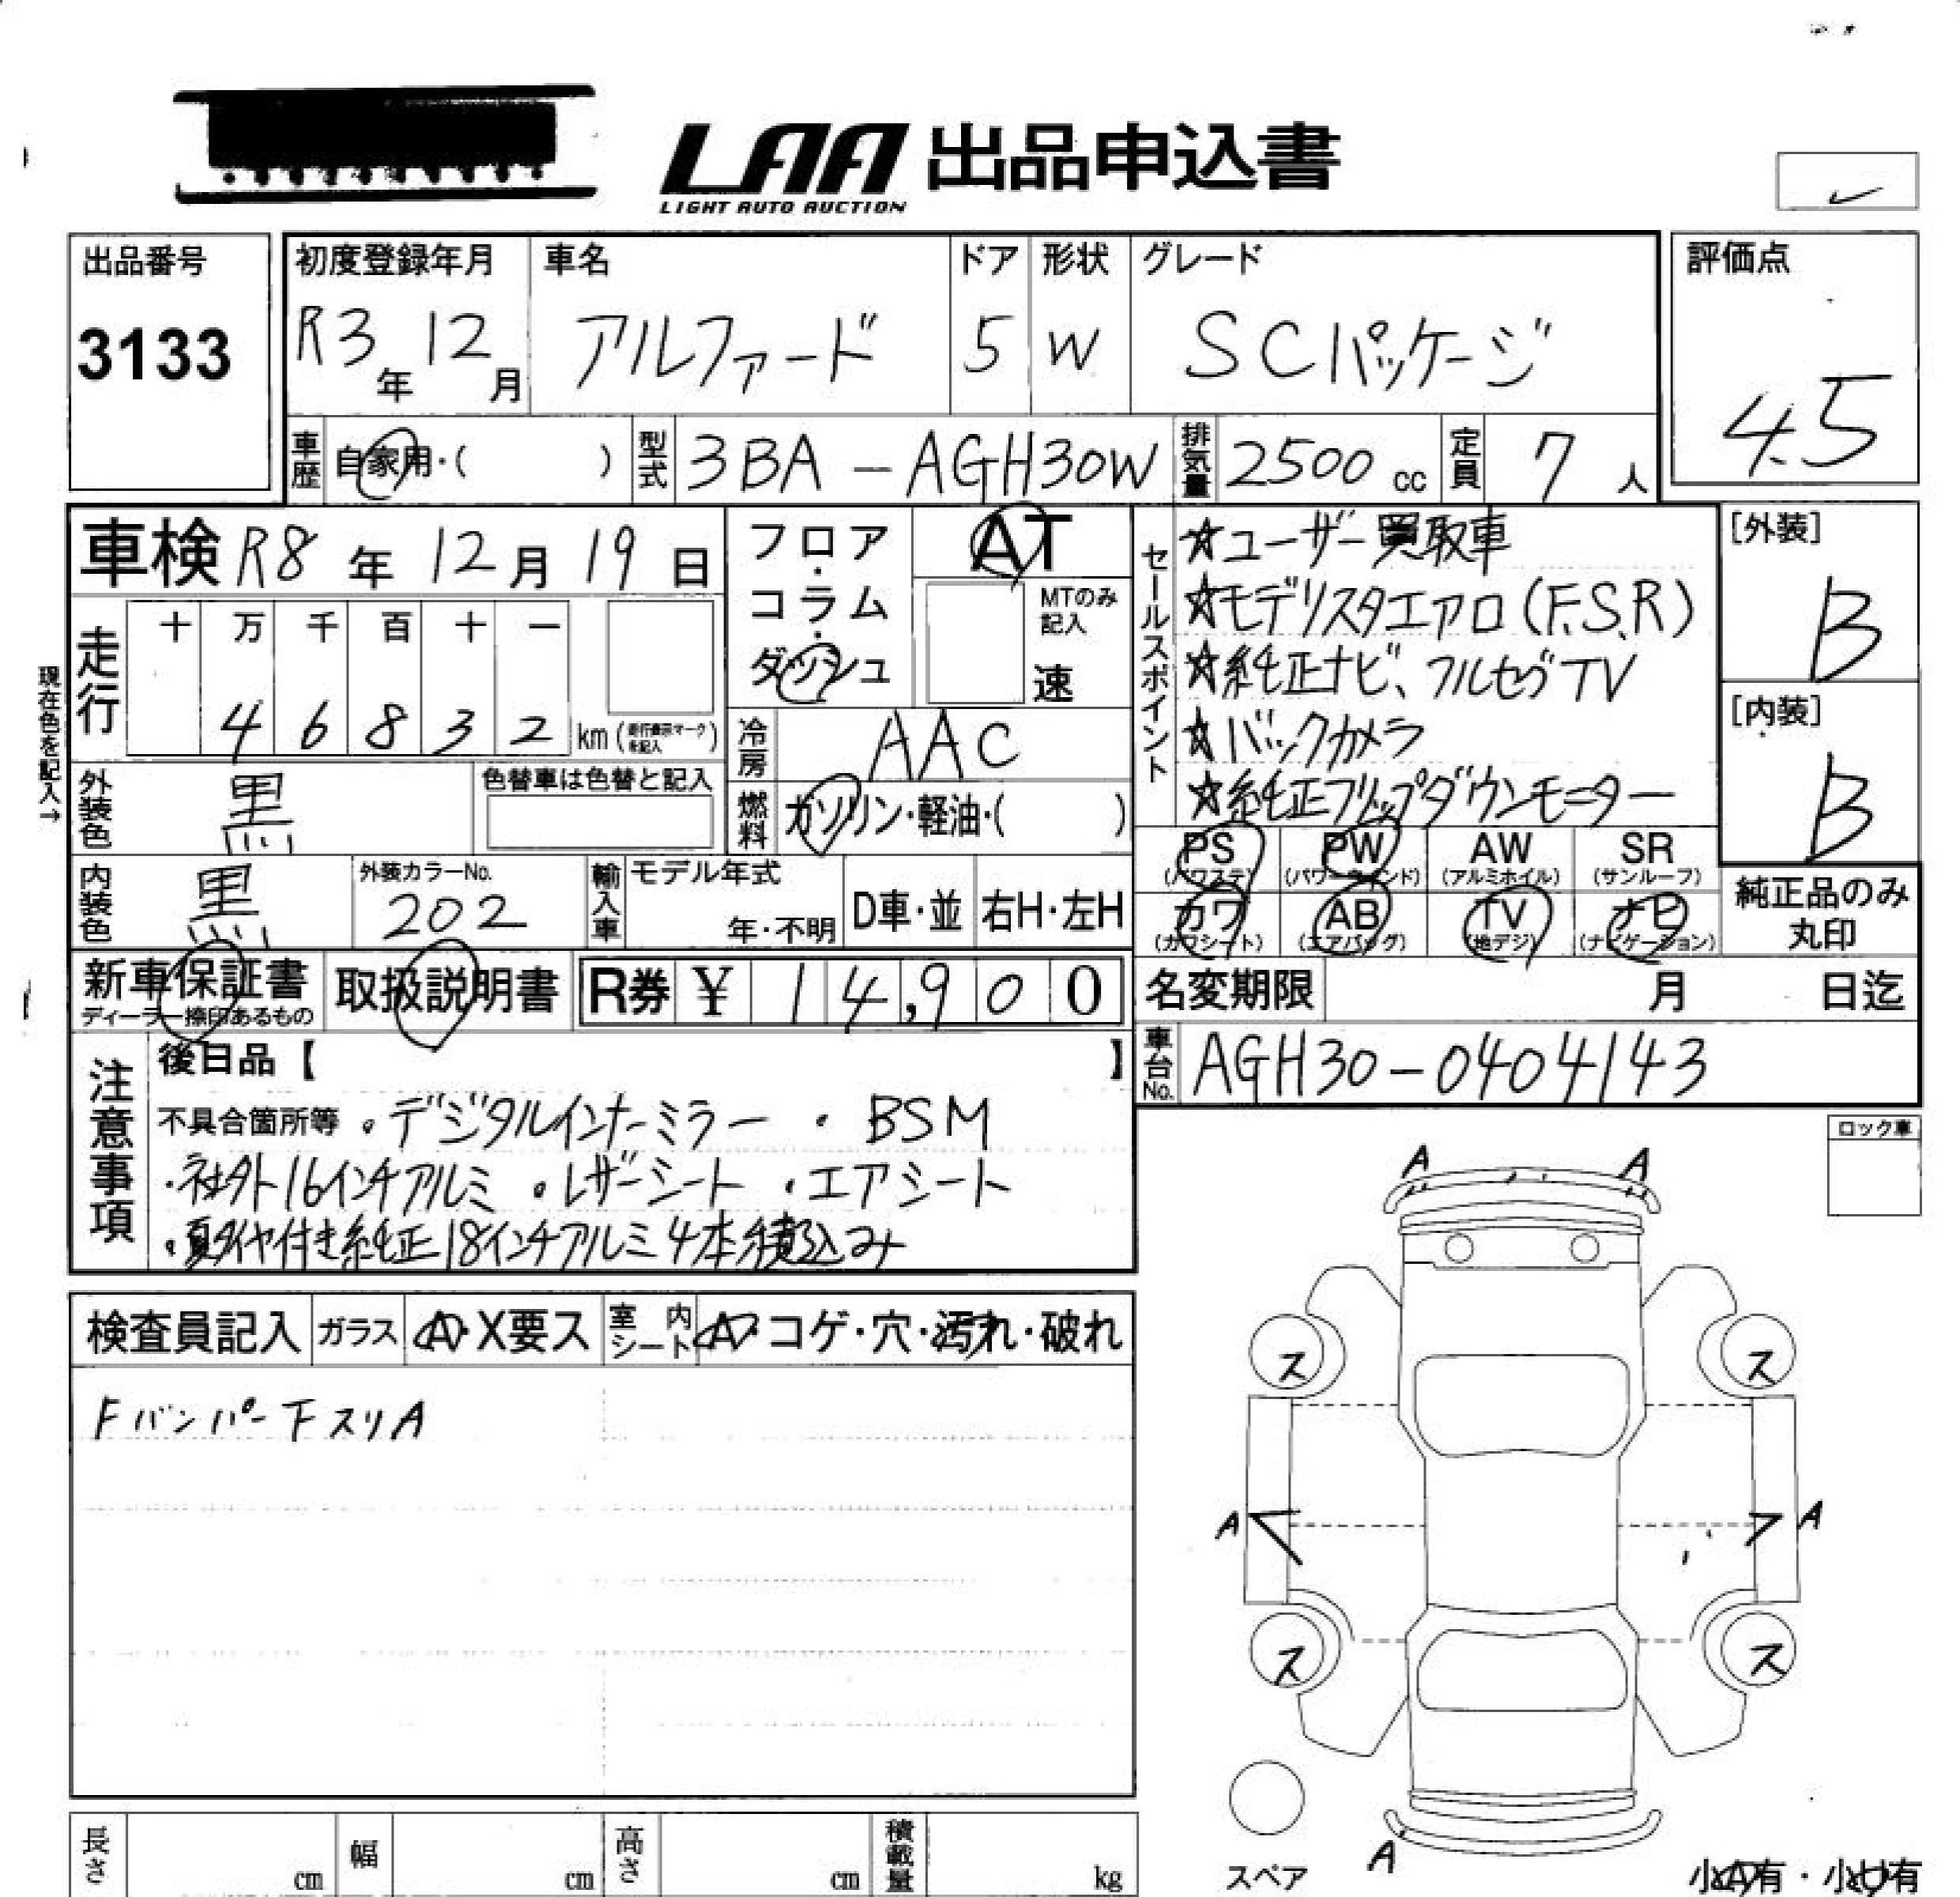 LAA 出品申込書
LIGHT AUTO AUCTION
出品番号
3133
初度登録年月
R3年12月
車名
アルファード
ドア
5
形状
W
グレード
SCパッケージ
評価点
4.5
車歴 自家用・( )
型式 3BA-AGH30W
排気量 2500 cc
定員 7人
車検 R8年12月19日
走行 十 万 千 百 十 一
4 6 8 3 2 km (走行表示マークを記入)
現在色を記入→
フロア・コラム・ダッシュ
AT
MTのみ記入
速
冷房 AAC
燃料 ガソリン・軽油・( )
外装色 黒
色替車は色替と記入
内装色 黒
外装カラーNo.
202
輸入車 モデル年式
年・不明
D車・並
右H・左H
セールスポイント
☆ユーザー買取車
☆モデリスタエアロ(F.S.R)
☆純正ナビ、フルセグTV
☆バックカメラ
☆純正フリップダウンモニター
[外装]
B
[内装]
B
PS (パワステ)
PW (パワーウィンド)
AW (アルミホイル)
SR (サンルーフ)
カワ (カワシート)
AB (エアバッグ)
TV (地デジ)
ナビ (ナビゲーション)
純正品のみ
丸印
新車保証書
ディーラー捺印あるもの
取扱説明書
R券 ¥ 14,900
名変期限 月 日迄
車台No. AGH30-0404143
注意事項
後日品【 】
不具合箇所等 ・デジタルインナーミラー ・BSM
・社外16インチアルミ ・レザーシート ・エアシート
・夏タイヤ付き純正18インチアルミ4本積込み
ロック車
検査員記入 ガラス A・X要ス 室内シート A・コゲ・穴・汚れ・破れ
Fバンパー下スリA
A A
ス ス
A A
ス ス
スペア
A
小A有・小U有
長さ cm
幅 cm
高さ cm
積載量 kg